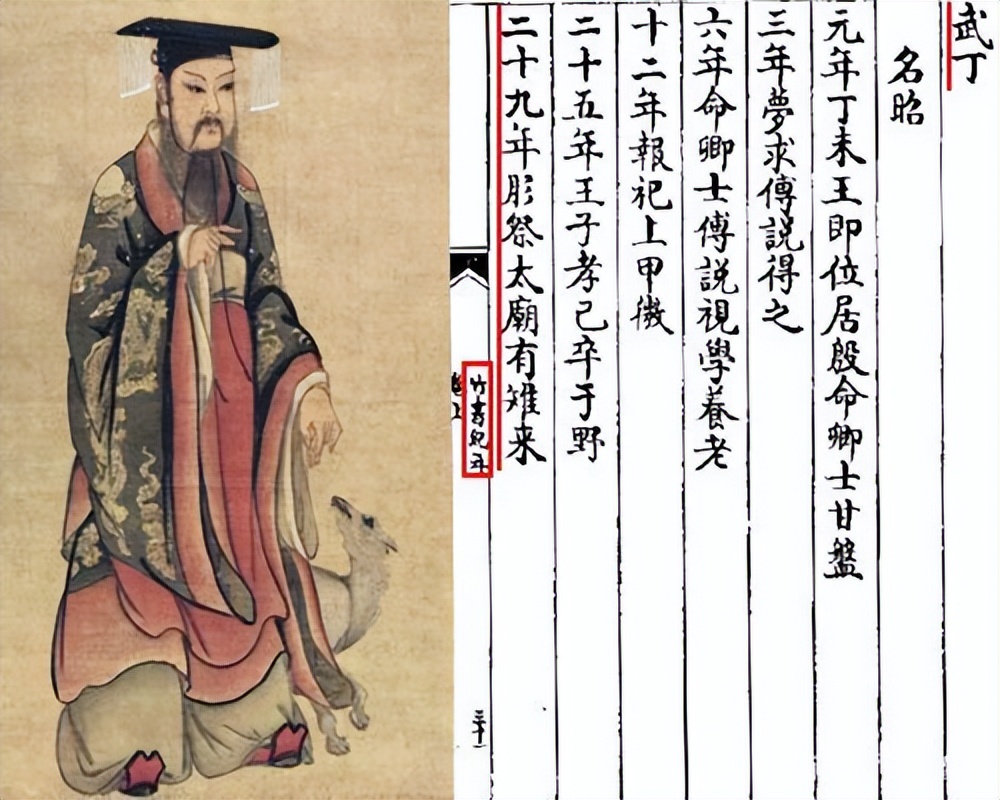 武丁
名昭
元年丁未王即位居殷命卿士甘盤
三年夢求傅説得之
六年命卿士傅説視學養老
十二年報祀上甲微
二十五年王子孝己卒于野
二十九年肜祭太廟有雉来
竹書紀年
三十一